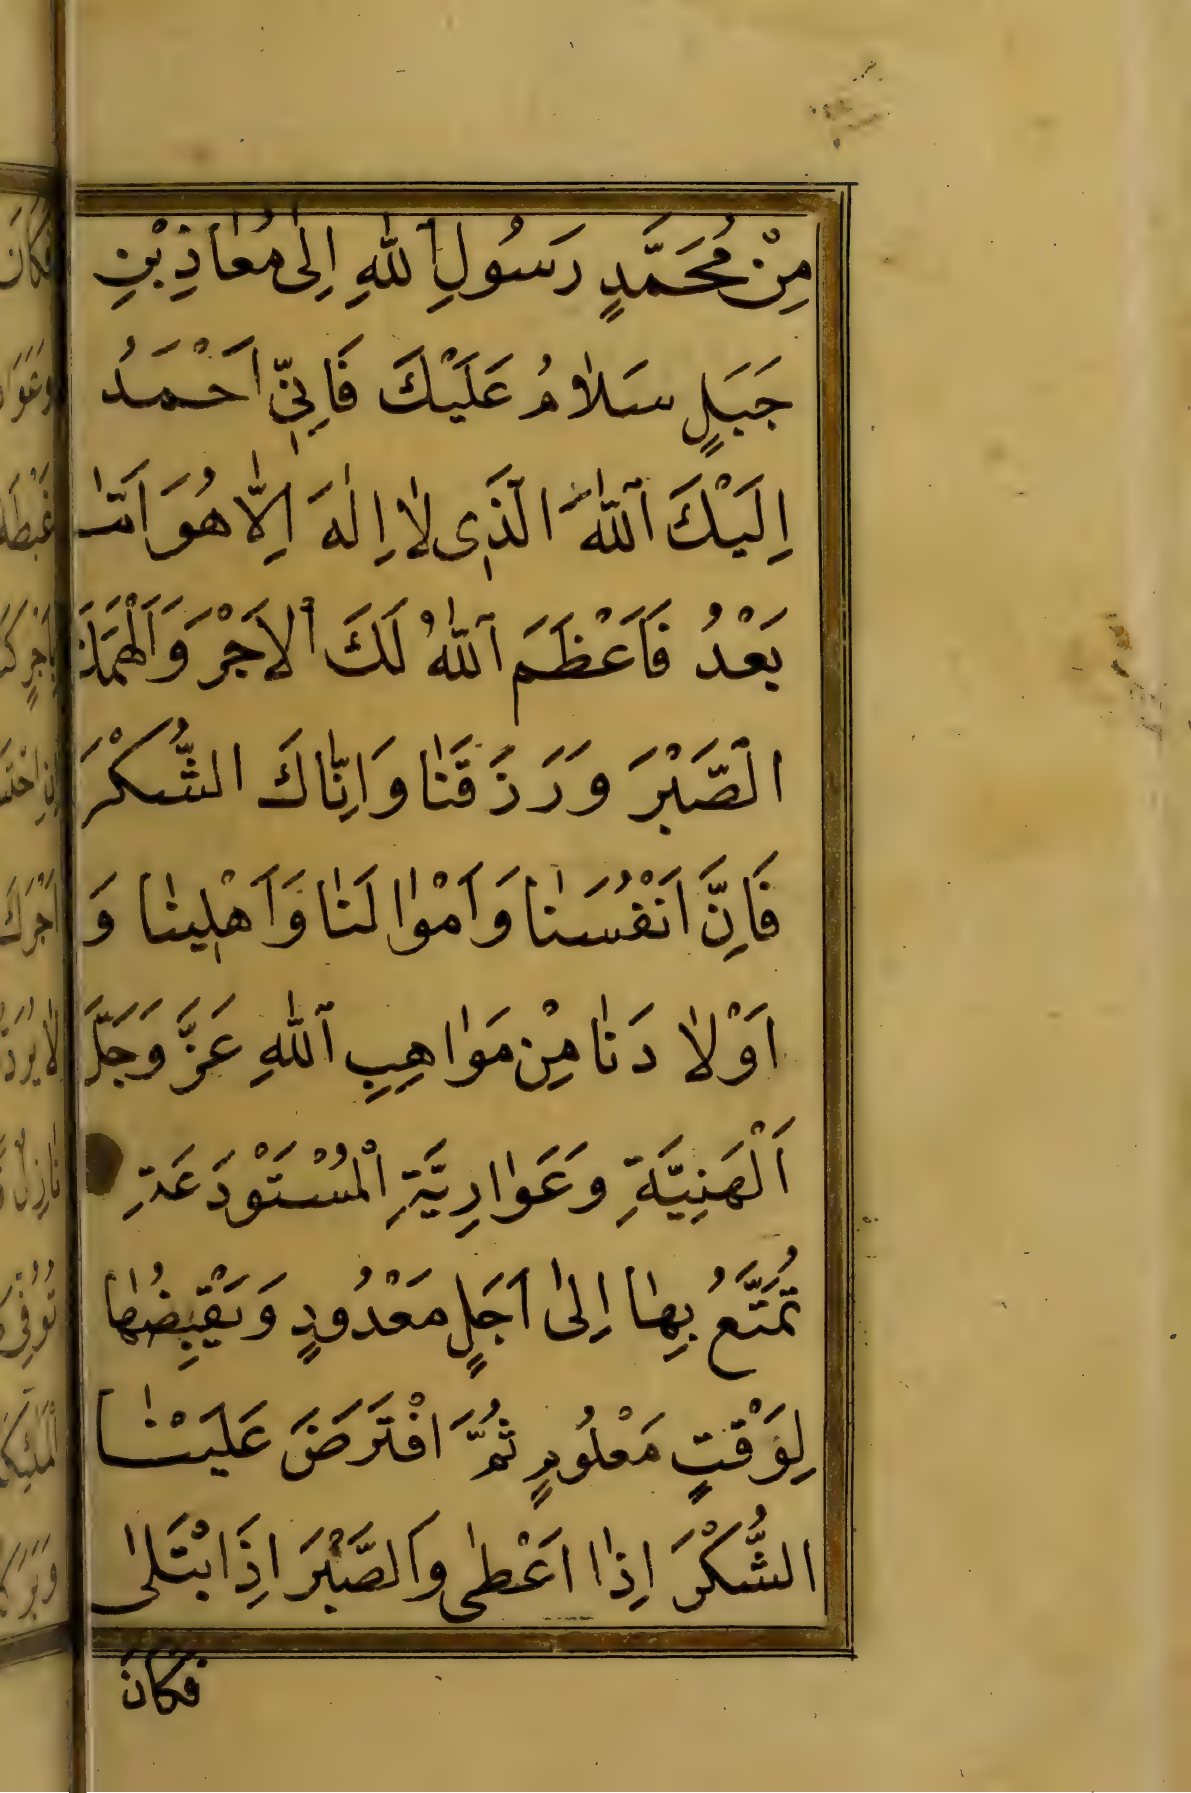 مِنْ مُحَمَّدٍ رَسُولِ اللهِ اِلٰى مُعَاذِ بْنِ
جَبَلٍ سَلَامُ عَلَيْكَ فَاِنّٖي اَحْمَدُ
اِلَيْكَ اللهَ الَّذٖى لَا اِلٰهَ اِلَّا هُوَ اَمَّا
بَعْدُ فَاَعْظَمَ اللهُ لَكَ الْاَجْرَ وَاَلْهَمَكَ
الصَّبْرَ وَرَزَقَنَا وَاِيَّاكَ الشُّكْرَ
فَاِنَّ اَنْفُسَنَا وَاَمْوَالَنَا وَاَهْلٖينَا وَ
اَوْلَادَنَا مِنْ مَوَاهِبِ اللهِ عَزَّ وَجَلَّ
اَلْهَنِيَّةِ وَعَوَارِيَّةِ الْمُسْتَوْدَعَةِ
تُمَتَّعُ بِهَا اِلٰى اَجَلٍ مَعْدُودٍ وَيَقْبِضُهَا
لِوَقْتٍ مَعْلُومٍ ثُمَّ افْتَرَضَ عَلَيْنَا
الشُّكْرَ اِذَا اَعْطٰى وَالصَّبْرَ اِذَا ابْتَلٰى
فَكَانَ